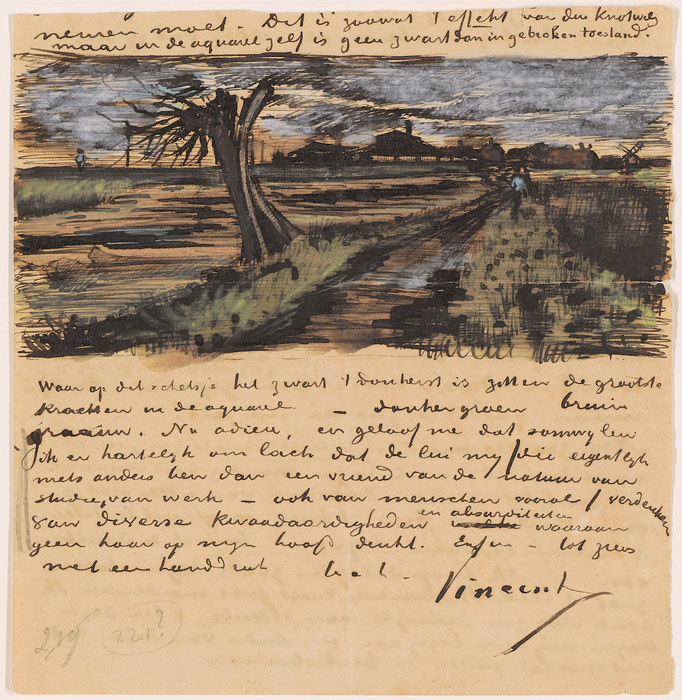 nemen moet. Dit is zoowat 't effekt van den Knotwilg
maar in de aquarel zelf is geen zwart dan in gebroken toestand.
Waar op dit schetsje het zwart 't donkerst is zitten de grootste
krachten in de aquarel — donkergroen bruin
graauw. Nu adieu, en geloof me dat somwijlen
ik er hartelyk om lach dat de lui my (die eigentlyk
niets anders ben dan een vriend van de natuur van
studie, van werk — ook van menschen vooral) verdenken
van diverse kwaadaardigheden en absurditeiten waaraan
geen haar op myn hoofd denkt. Enfin — tot ziens
met een handdruk t. à t. Vincent
219 221?